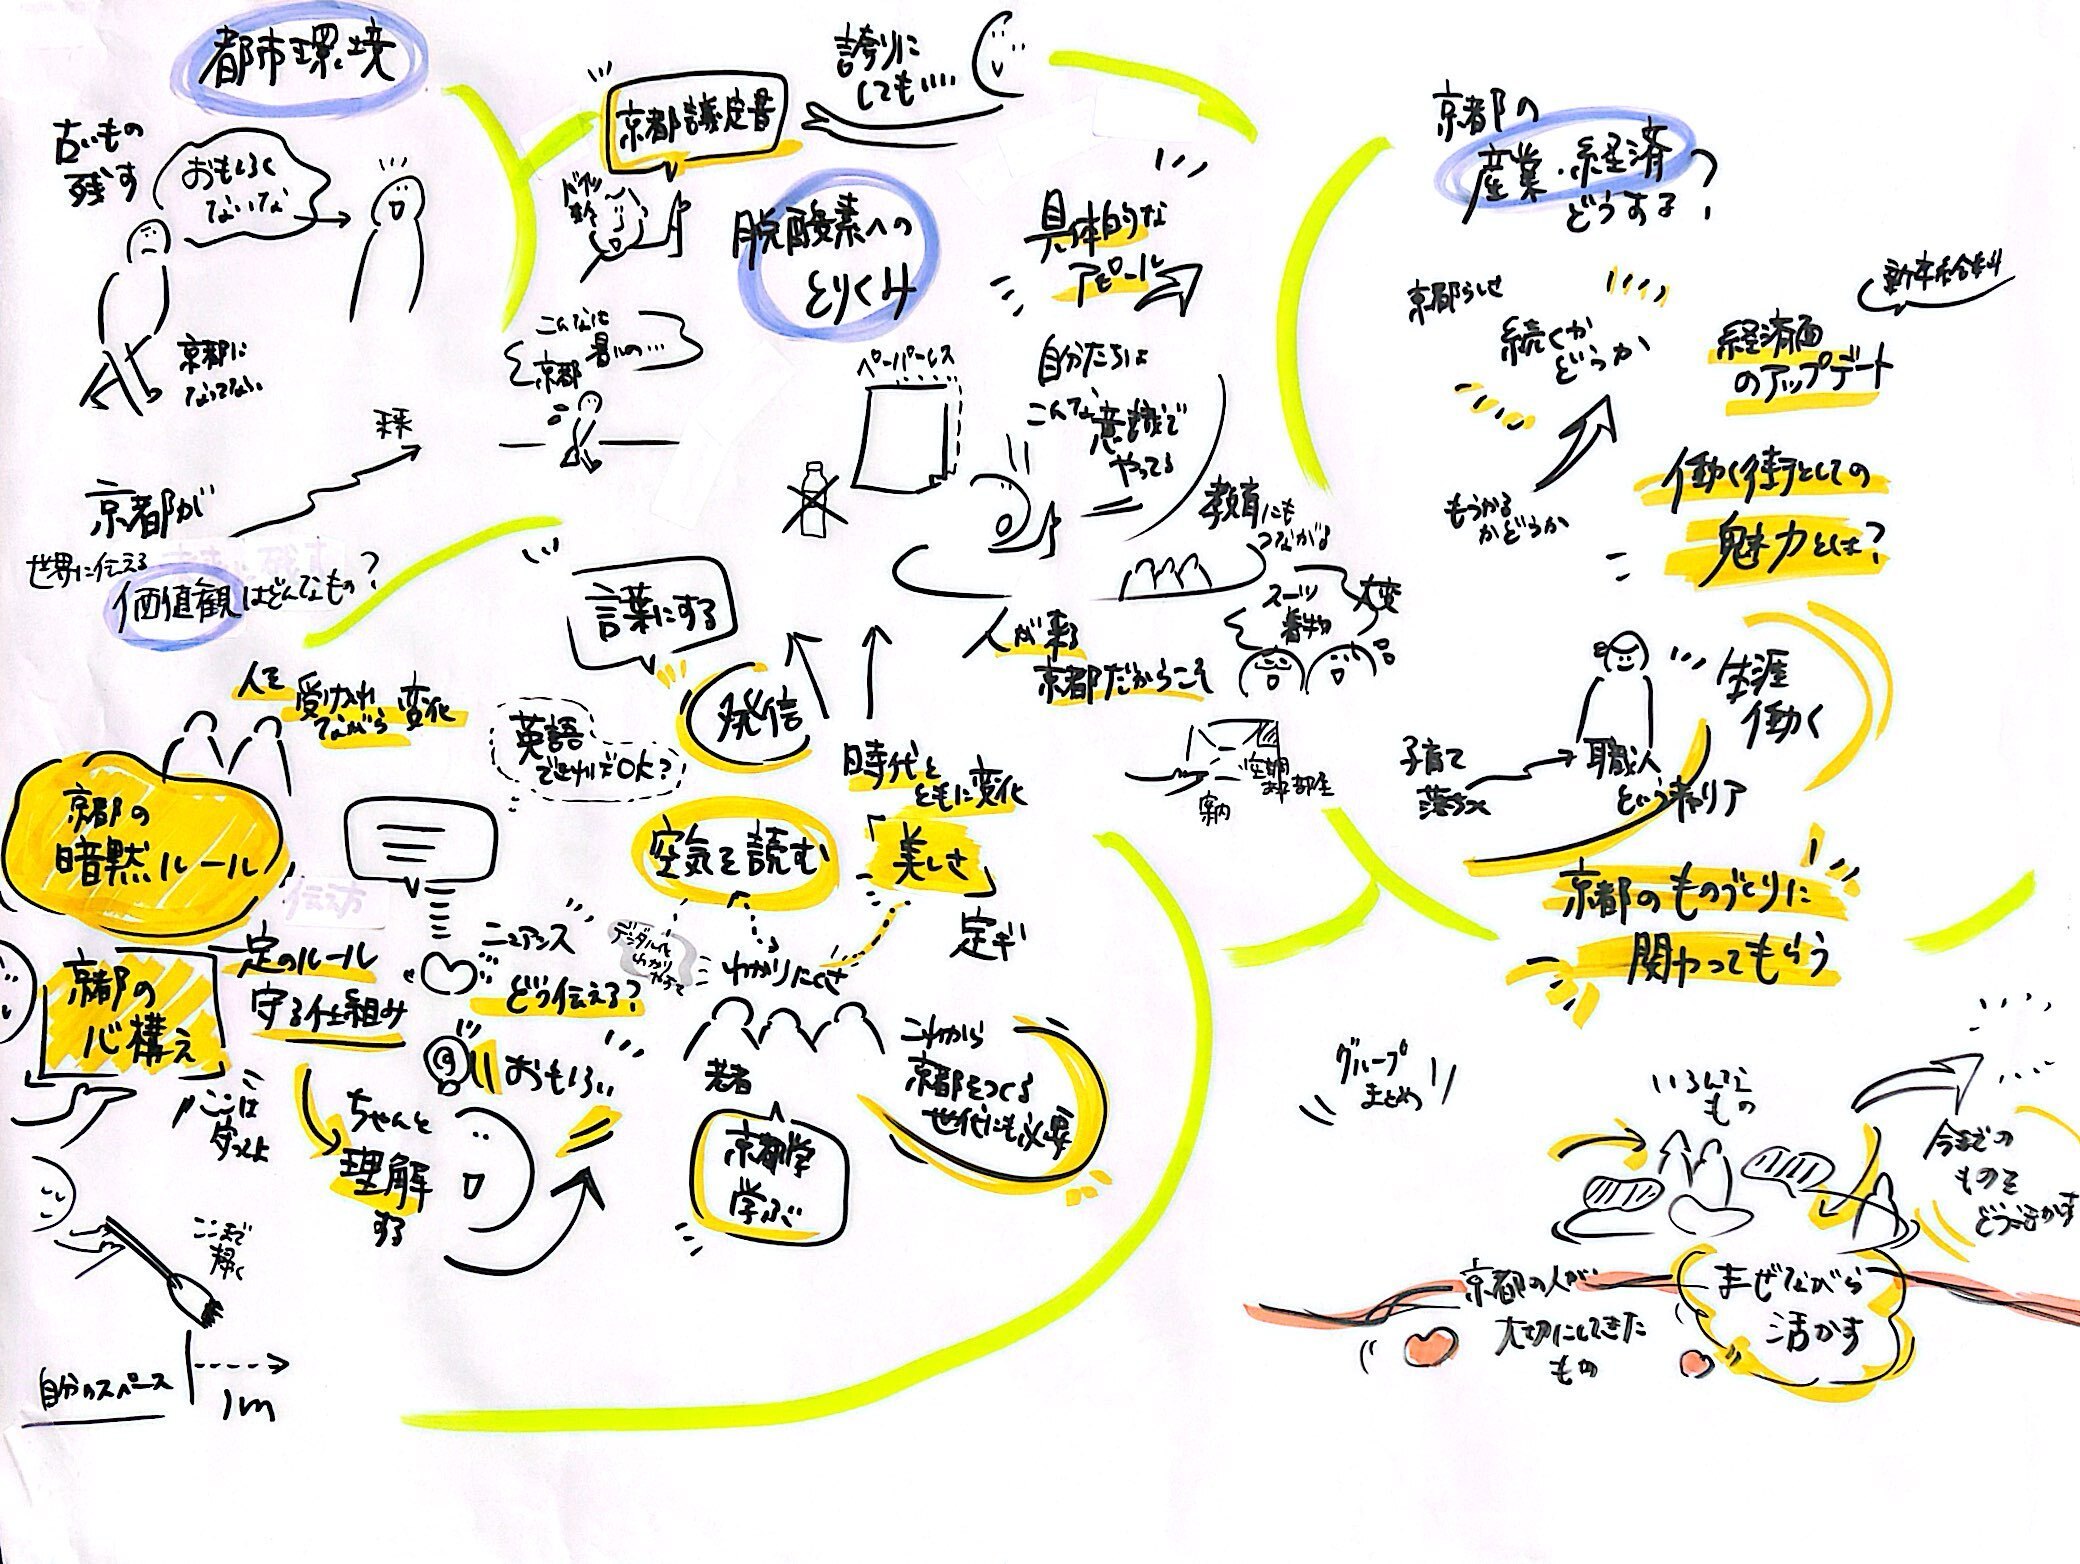 都市環境
古いもの
残す
おもしろく
ないな
京都に
なってない
未来
京都が
世界に伝える
価値観はどんなもの?
京都議定書
誇りに
しても....
脱酸素への
とりくみ
具体的な
アピール
こんなに
暑いの…
京都
ペーパーレス
自分たちは
こんな意識で
やってる
教育にも
つながる
人が来る
京都だからこそ
スーツ
着物
大変
案内
京都の
産業・経済
どうする?
京都らしさ
続くか
どうか
もうかる
かどうか
新卒給料
経済面
のアップデート
働く街としての
魅力とは?
生涯
働く
子育て
落ちつく
職人
というキャリア
京都のものづくりに
関わってもらう
人を
受け入れ
ながら変化
京都の
暗黙ルール
京都の
心構え
一定のルール
守る仕組み
ここは
守ってよ
ちゃんと
理解
する
ここまで
掃く
自分のスペース
1m
言葉にする
発信
英語
できればOK?
時代と
ともに変化
空気を読む
「美しさ」
定ギ
ニュアンス
どう伝える?
デジタル化
わかりにくさ
おもしろい
若者
京都学
学ぶ
これから
京都をつくる
世代にも必要
グループ
まとめ
いろんな
もの
今までの
ものを
どう活かす
京都の人が
大切にしてきた
もの
まぜながら
活かす